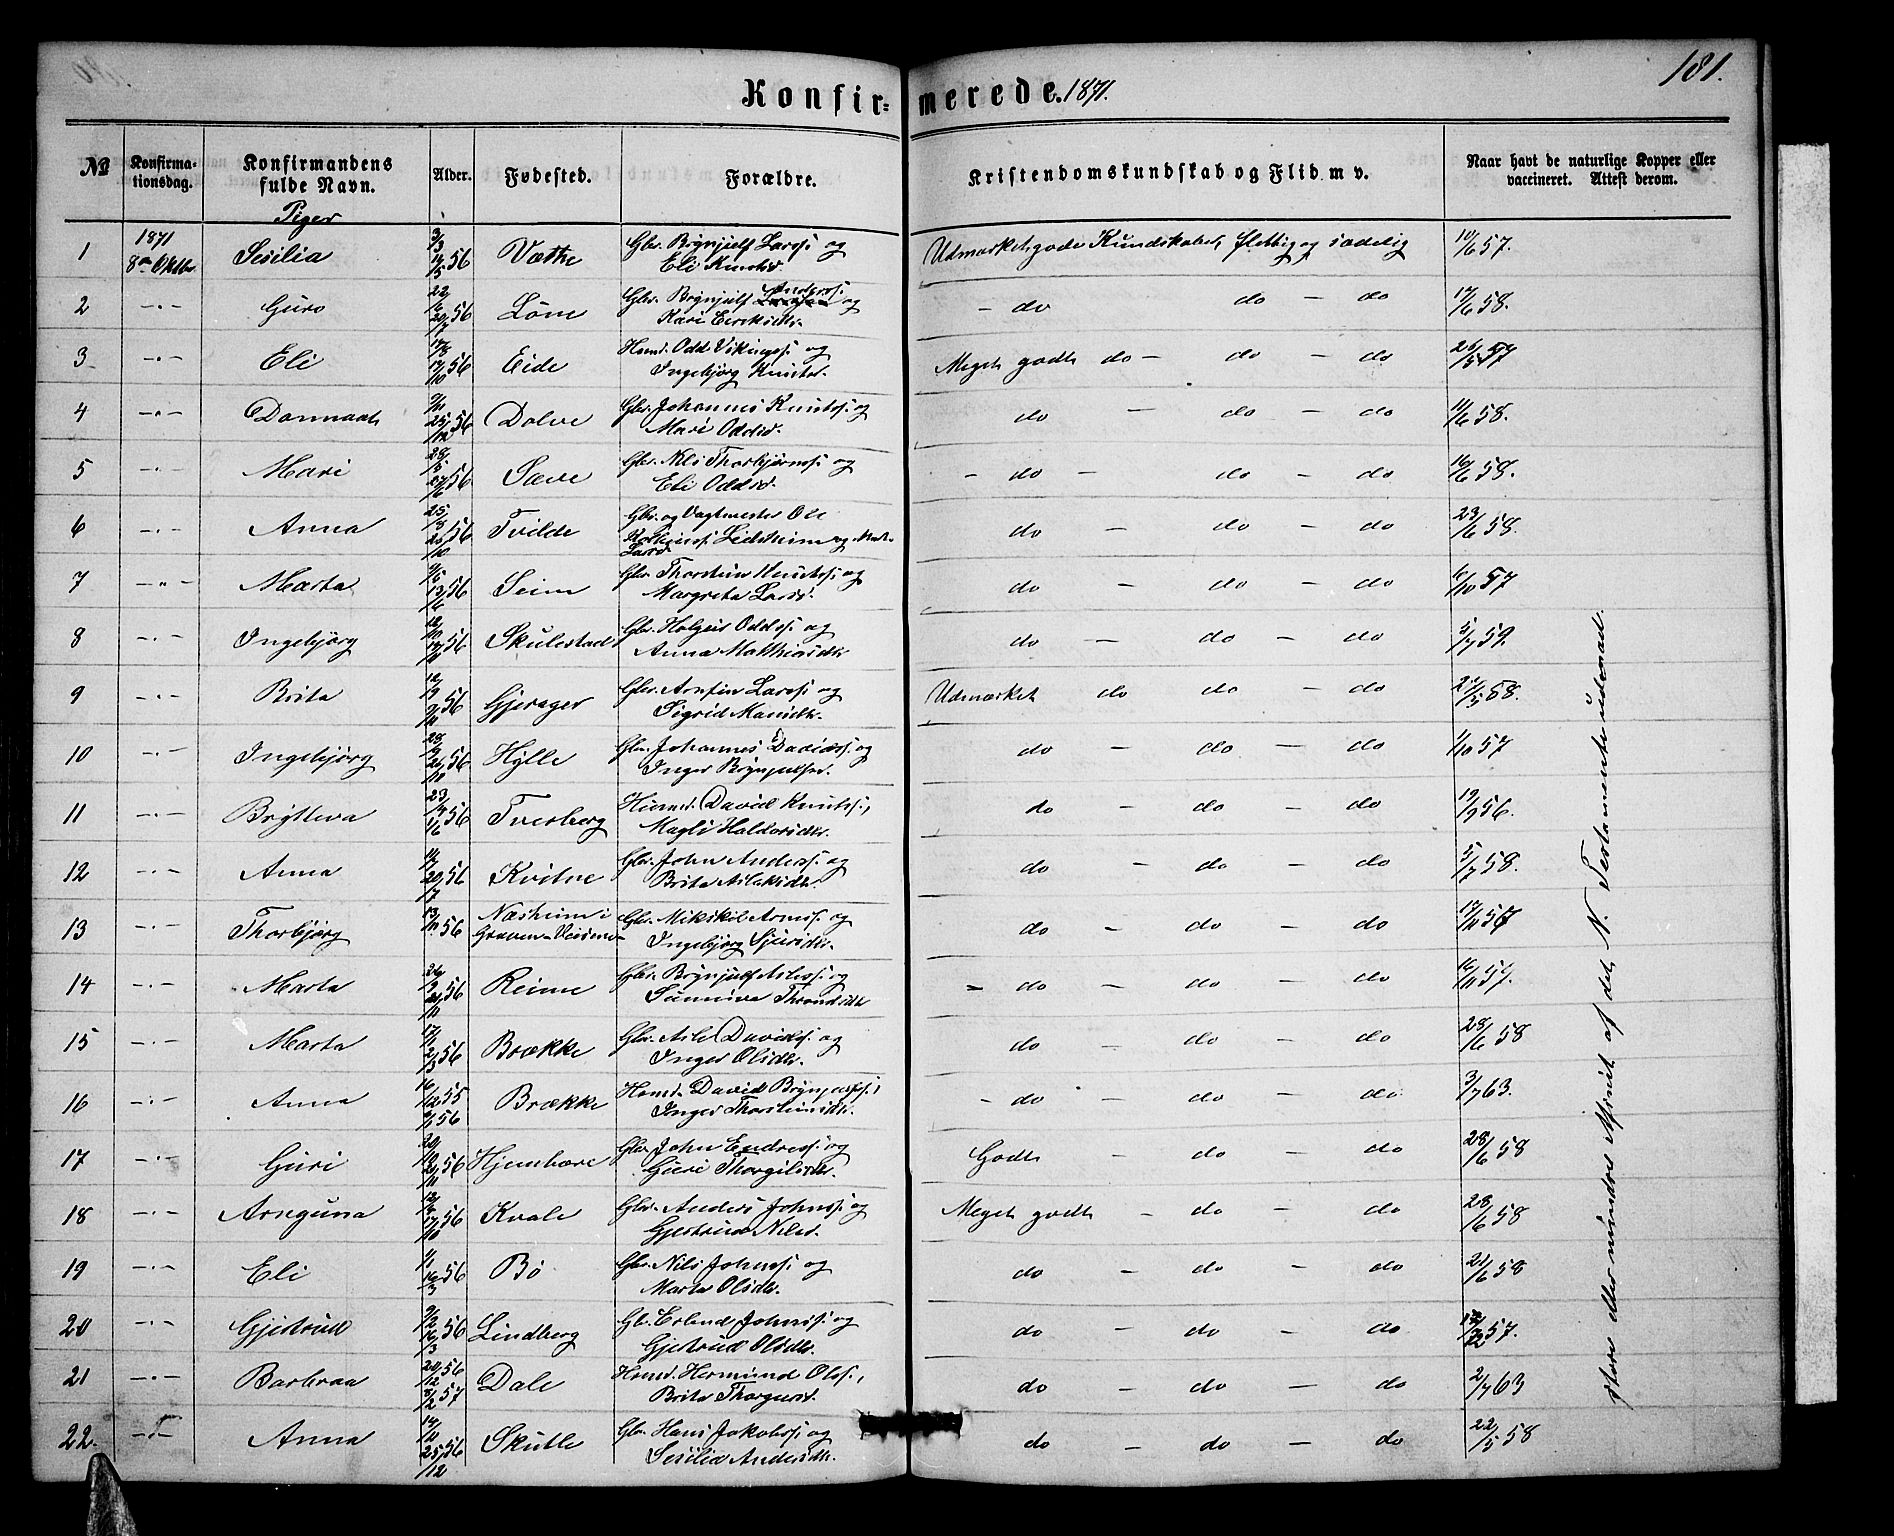 181.
Konfir= merede. 1871.
№ Konfirma-tionsdag. Konfirmandens fulde Navn. Alder. Fødested. Forældre. Kristendomskundskab og Flid m v. Naar havt de naturlige Kopper eller vaccineret. Attest derom.
Piger
1 1871 8de Oktbr. Sesilia 3/3 14/5 56 Væthe Gbr. Brynjulf Larss: og Eli Knutsd. Udmærket gode Kundskaber, flittig og sædelig 10/6 57.
2 -"- Guro 56 Løne Gbr. Brynjulf Anderss: og Kari Eiriksdtr. - do do - do 17/6 58.
3 -"- Eli 56 Eide Huusm. Odd Vikingss: og Ingebjørg Knutsd. Meget godt do - do - do 26/5 57
4 -"- Danmaat 56 Dolve Gbr. Johannes Knutss: og Mari Oddsd. do - do - do 11/6 58.
5 -"- Mari 56 Sæve Gbr. Nils Thorbjørnss: og Eli Oddsd. - do - do - do 16/6 58.
6 -"- Anna 25/8 56 Tvilde Gbr. og Vagtmester Ole Lidsheim og Larsd. do - do - do 23/6 58.
7 -"- Marta 56 Seim Gbr. Thorstein Knutss: og Margreta Larsd. do - do - do 6/10 57
8 -"- Ingebjørg 56 Skulestad Gbr. Holgeir Oddss: og Anna Mathiasdtr. do - do - do 5/7 59.
9 -"- Brita 56 Gjerager Gbr. Arnfin Larss: og Sigrid Monsdtr. Udmærket do do - do 21/5 58.
10 -"- Ingebjørg 56 Hylle Gbr. Johannes Davidss: og Inger Brynjulfsd. do - do - do 1/10 57
11 -"- Brytteva 23/4 1/6 56 Tverberg Huusm. David Knutss:, Magli Haldorsdtr. do - do - do 19/9 56.
12 -"- Anna 20/7 56 Kvitne Gbr. John Anderss: og Brita Aslaksdtr. do - do - do 5/7 58.
13 -"- Thorbjørg 13/11 56 Næsheim i Graven Gbr. Mikkel Arness: og Ingebjørg Sjursdtr. do - do - do 17/11 57
14 -"- Marta 56 Reime Gbr. Brynjulf Asless: og Sunniva Throndsdtr - do - do - do 16/11 57.
15 -"- Marta 17/1 2/3 56 Brække Gbr. Asle Davidss: og Inger Olsdtr. do - do - do 28/6 58
16 -"- Anna 16/12 55 56 Brække Huusm. David Brynjulfss:, Inger Thorsteinsdtr. - do - do - do 3/7 63.
17 -"- Guri 56 Gbr. John Endress: og Guri Thorgilsdtr. Godt - do - do 28/6 58
18 -"- Arnguna 17/10 56 Kvale Gbr. Anders Johnss: og Gjertrud Nilsd. Meget godt - do - do 28/6 58
19 -"- Eli 1/1 16/3 56 Bø Gbr. Nils Johnss: og Marta Olsdtr. do - do - do 21/6 58
20 -"- Gjertrud 9/2 16/3 56 Lindberg Gbr. Erlend Johnss: og Gjertrud Olsdtr. do - do - do 57.
21 -"- Barbraa 20/12 56 8/2 57 Dale Huusm. Hermund Olss:, Brita Thorgersd. do - do - do 2/7 63
22. -"- Anna 14/11 25/12 56 Skutle Gbr. Hans Jakobss: og Sesilia Andersdtr. do - do - do 22/5 58
større eller mindre Afsnit af det N. Testamente udenad.